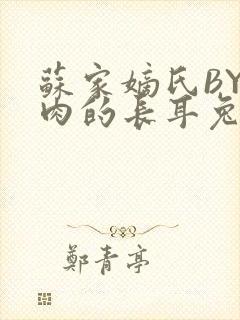 蘇家嫡氏BY
肉的長耳兔
鄭青亭